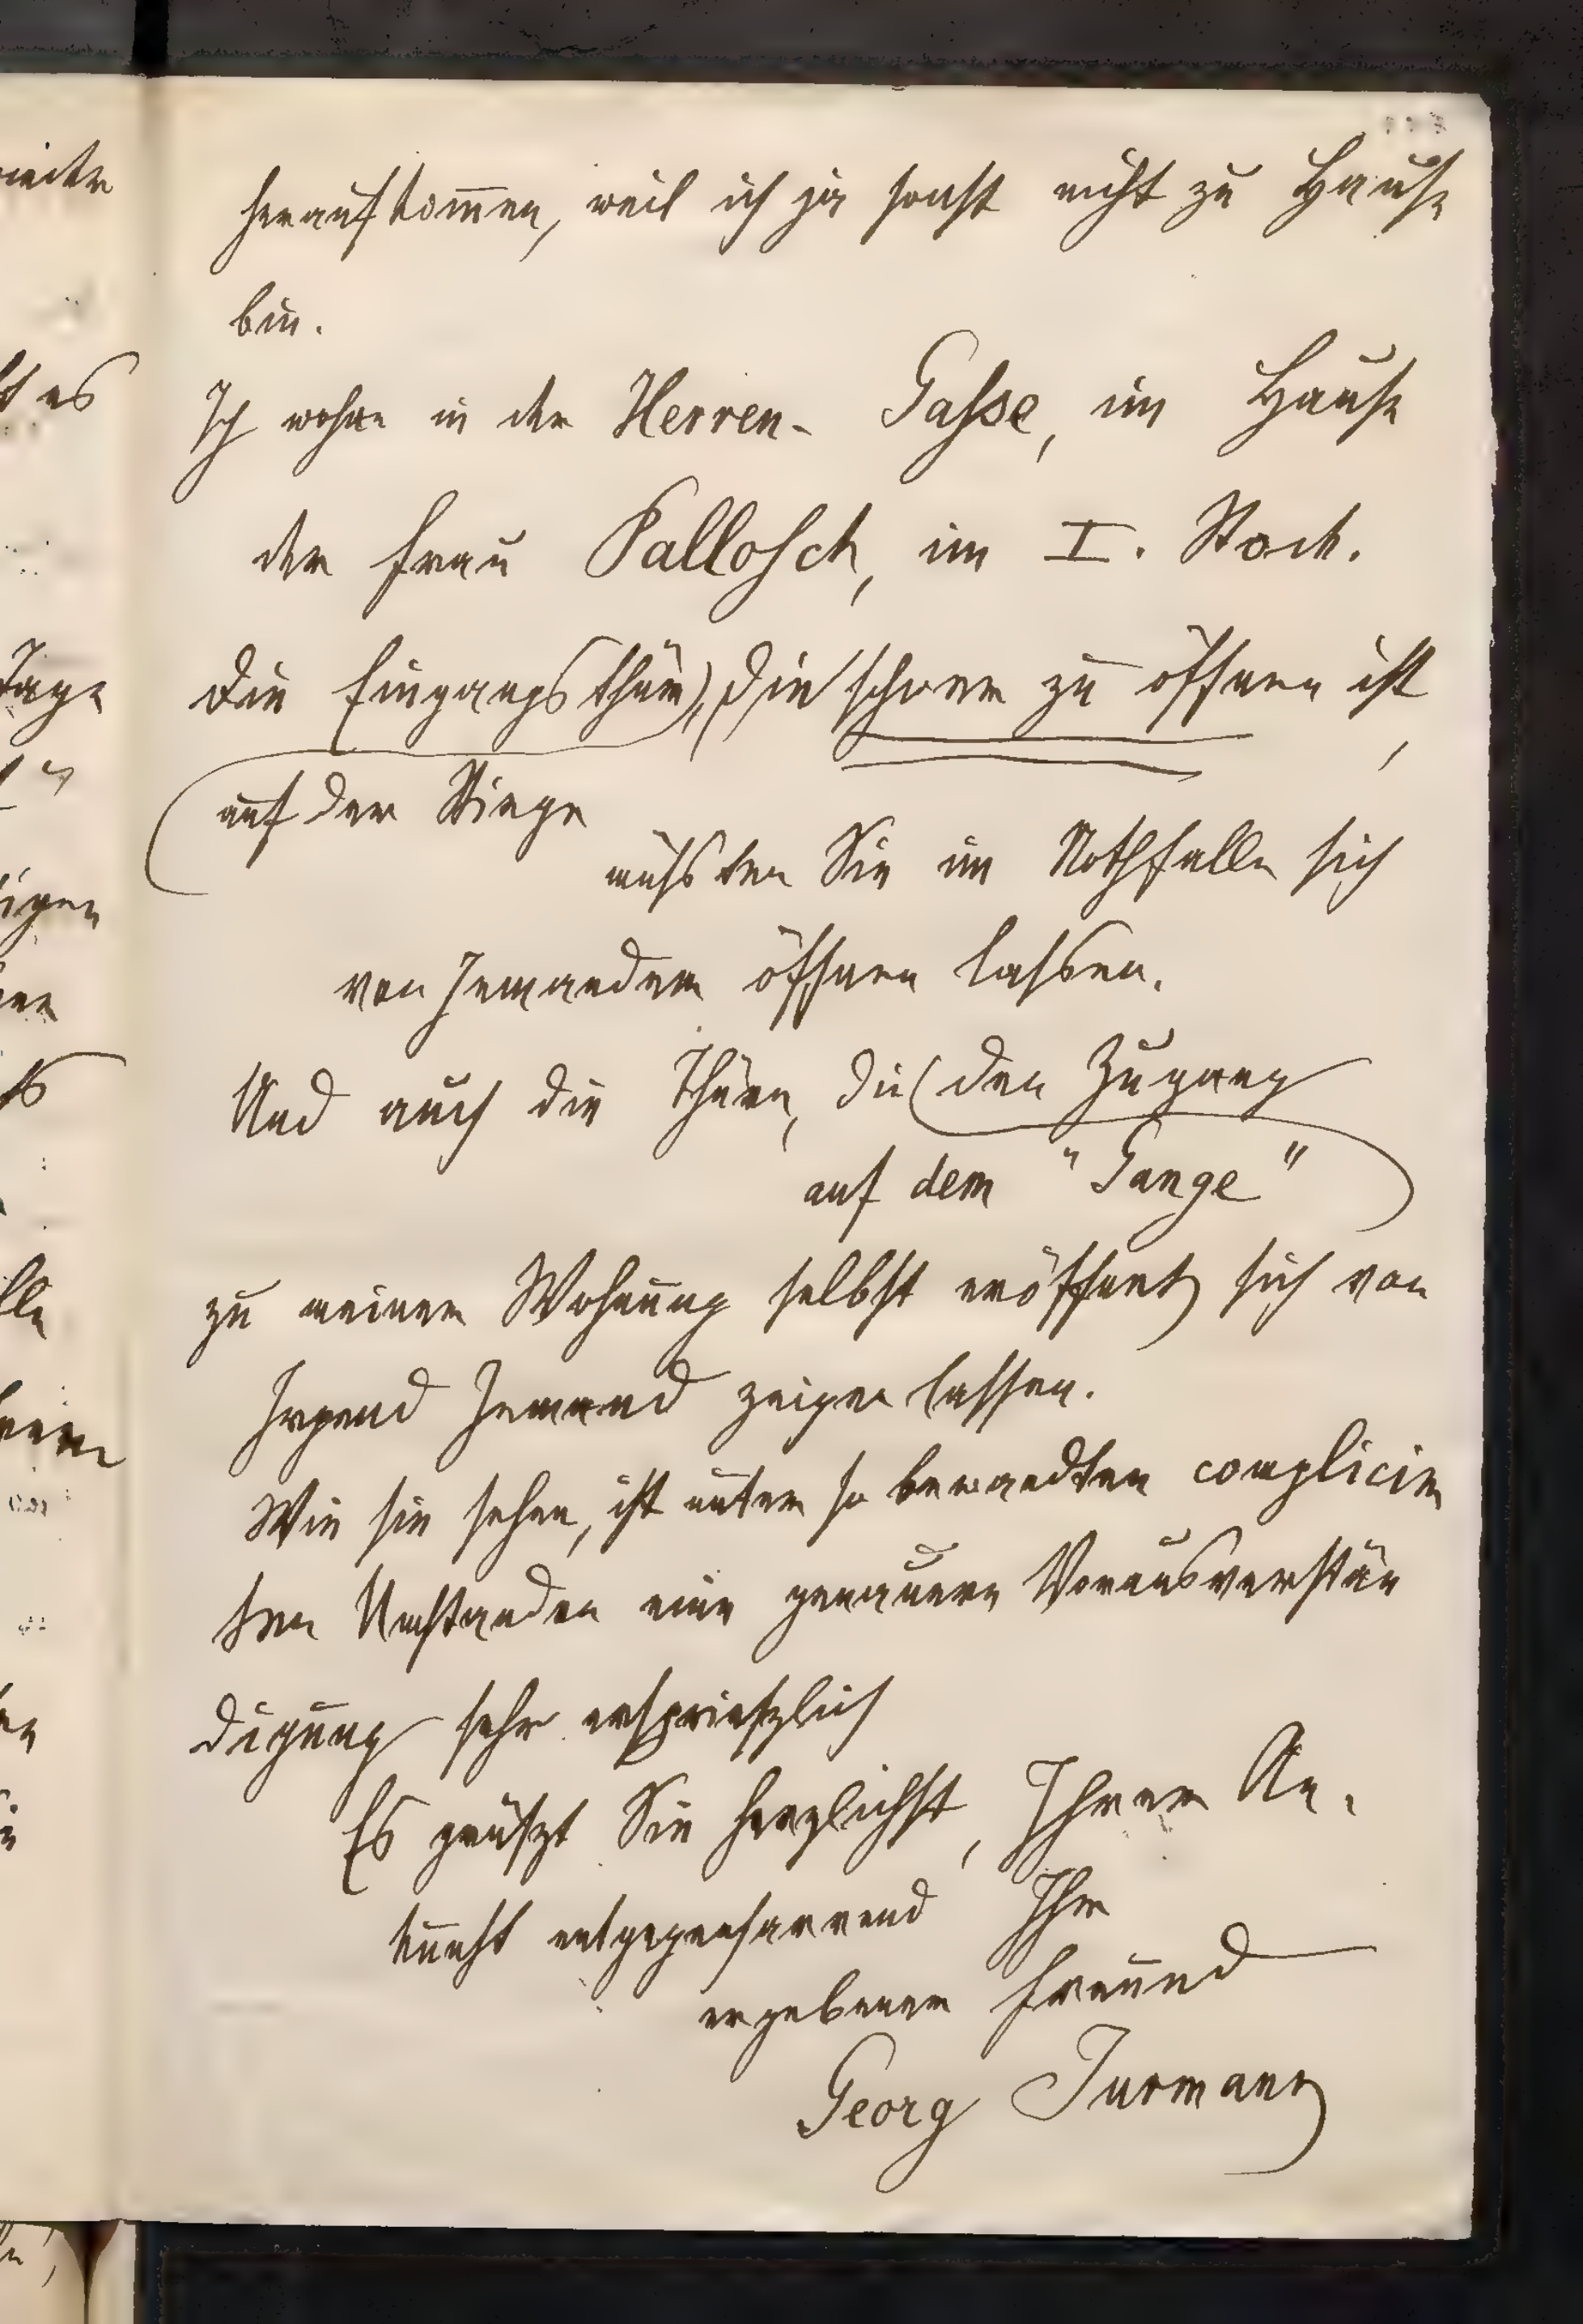 heraufkom̅en, weil ich ja sonst nicht zu Hause
bin.
Ich wohne in der Herren- Gasse, im Hause
der Frau Pallosch, im I. Stock.
die Eingangsthüre, die schwer zu öffnen ist,
auf der Stiege
müssten Sie im Nothfalle sich
von Jemandem öffnen lassen.
Und auch die Thüre, die (den Zugang
auf dem "Gange"
zu meiner Wohnung selbst eröffnet) sich von
Irgend Jemand zeigen lassen.
Wie sie sehen, ist unter so bewandten complicir
ten Umstanden eine genauere Vorausverstän
digung sehr erspriefzlich
Es grüfzt Sie herzlichst, Ihrer An-
kunft entgegenharrend Ihr
ergebener Freund
Georg Jurmann